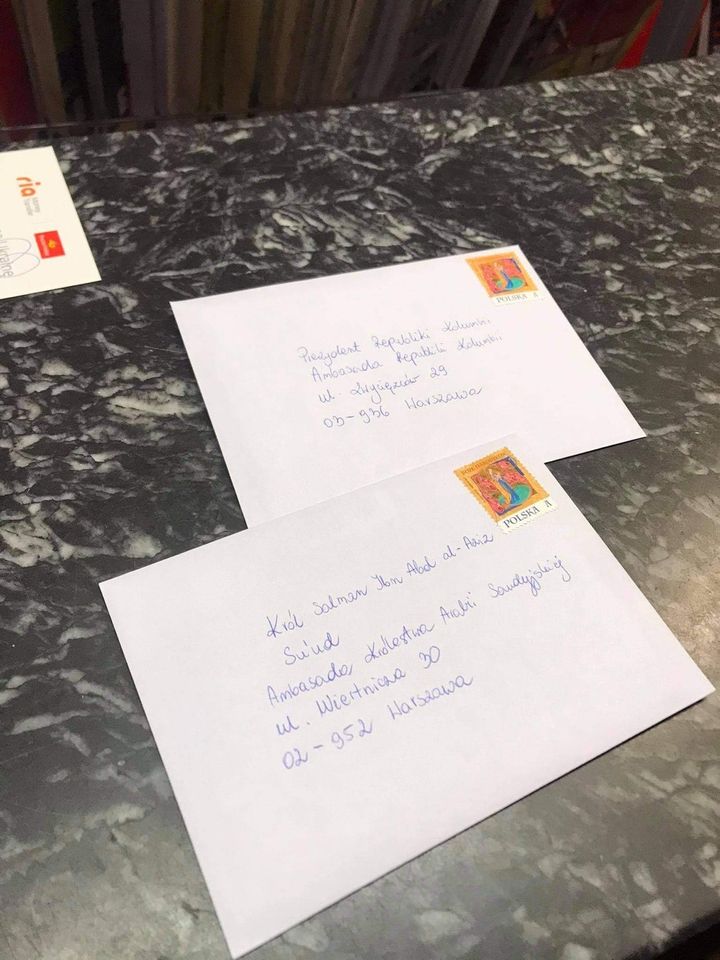 ria
Money
Transfer
Ukraine
POLSKA A
Prezydent Republiki Kolumbii
Ambasada Republiki Kolumbii
ul. Zwycięzców 29
03-936 Warszawa
POLSKA A
Król Salman Ibn Abd al-Aziz
Su'ud
Ambasada Królestwa Arabii Saudyjskiej
ul. Wiertnicza 30
02-952 Warszawa